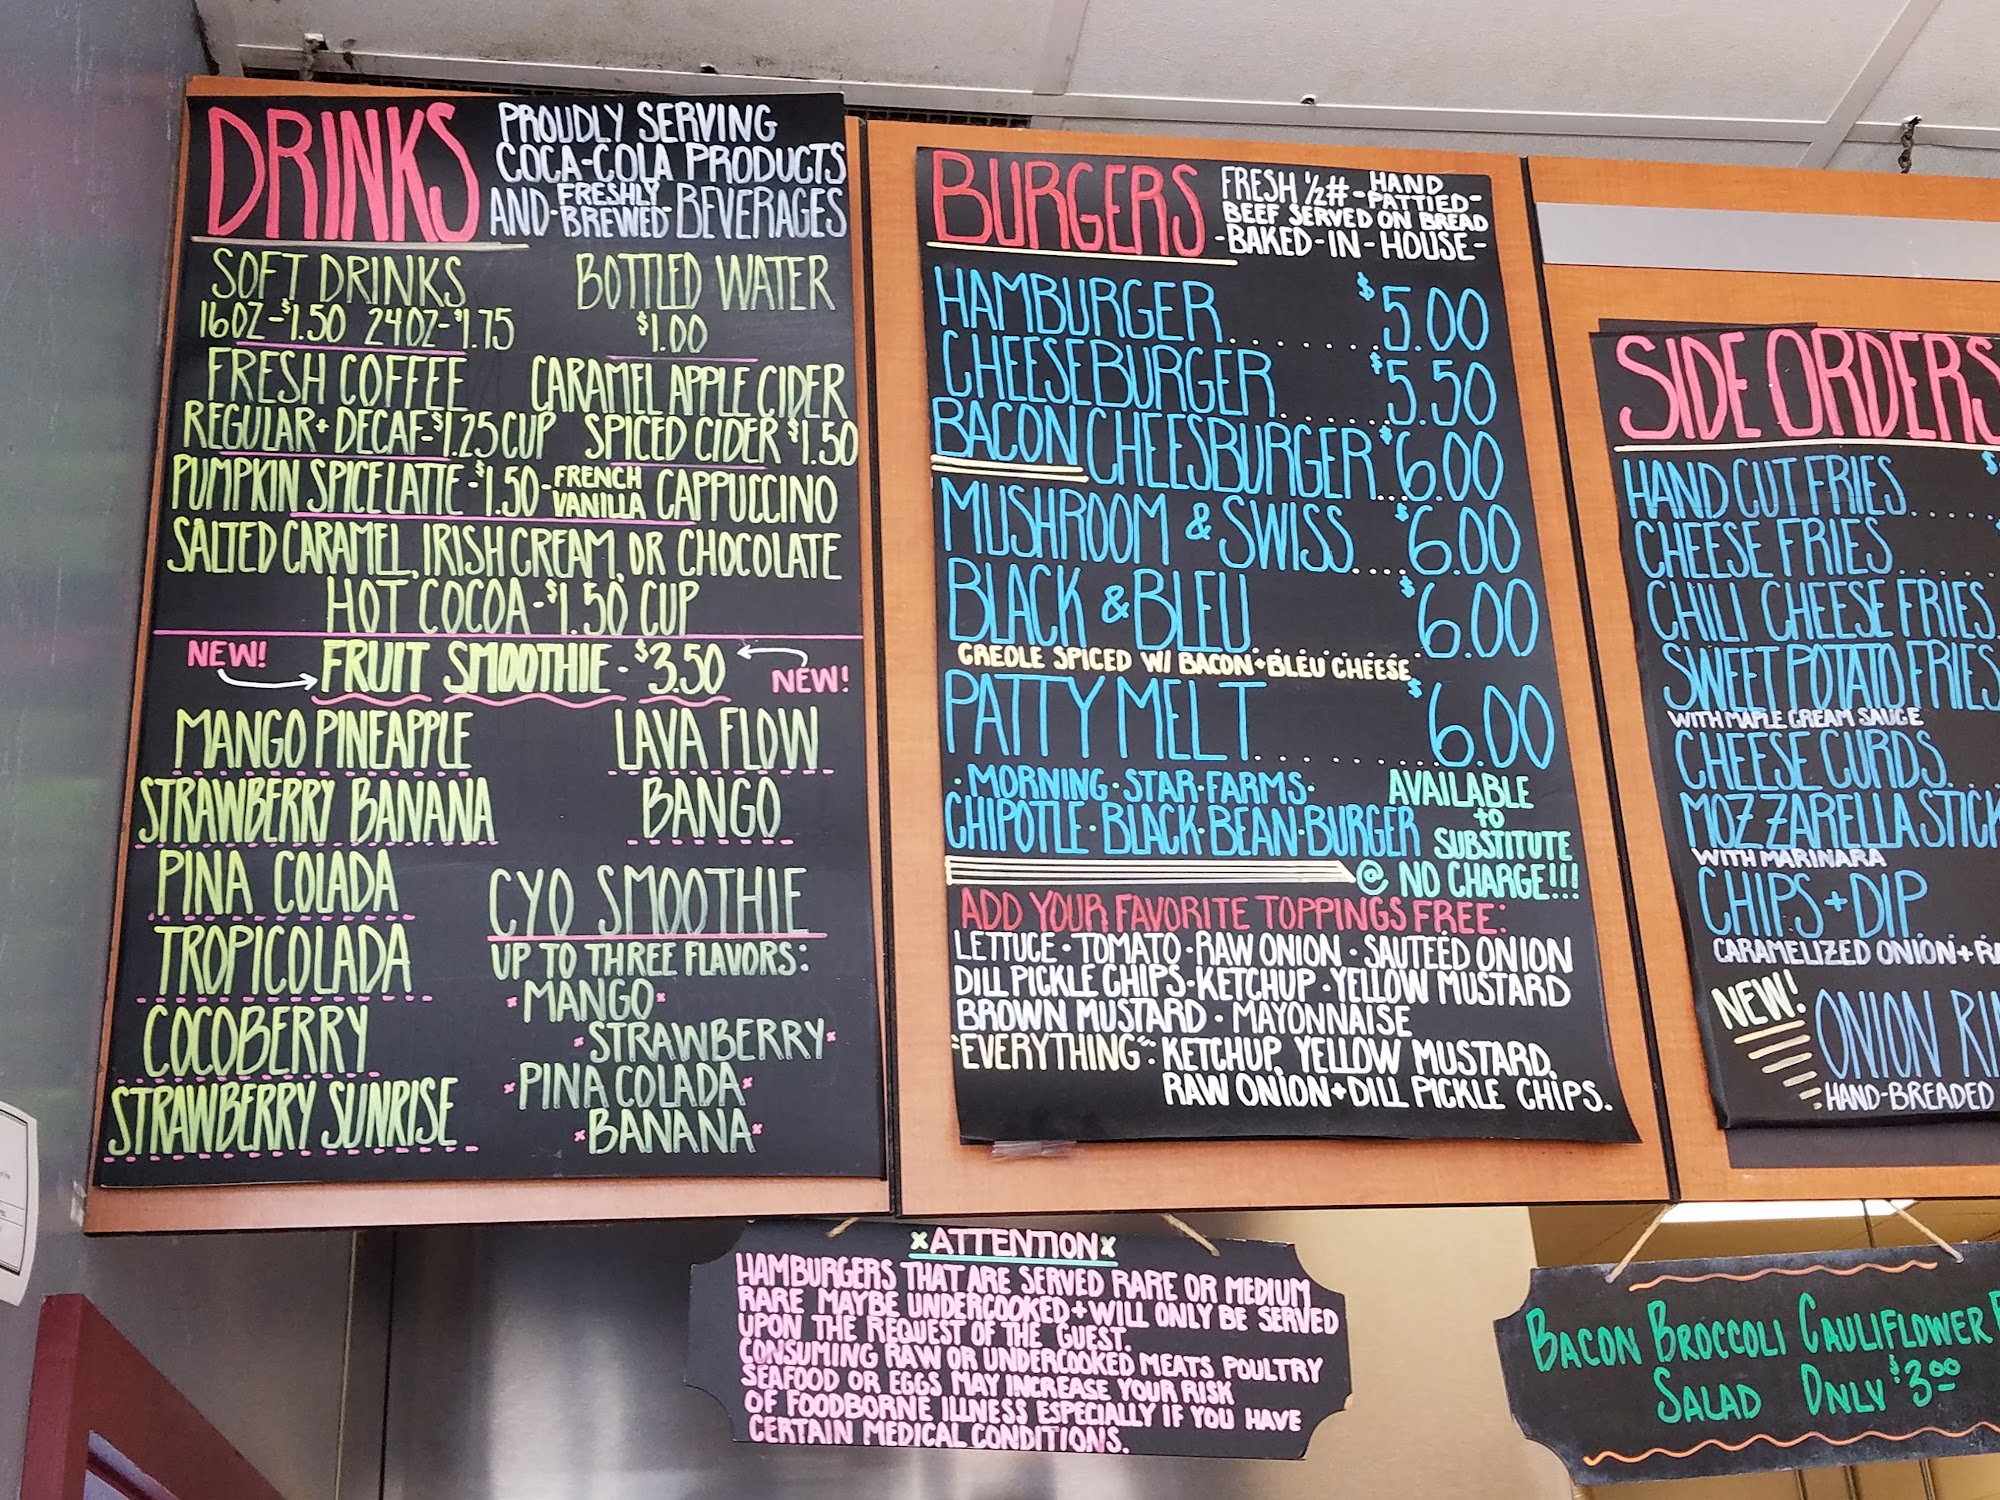 DRINKS
PROUDLY SERVING
COCA-COLA PRODUCTS
AND-FRESHLY BREWED-BEVERAGES
SOFT DRINKS
16OZ-$1.50 24OZ-$1.75
BOTTLED WATER
$1.00
FRESH COFFEE
REGULAR+DECAF-$1.25 CUP
CARAMEL APPLE CIDER
SPICED CIDER $1.50
PUMPKIN SPICE LATTE-$1.50-FRENCH VANILLA CAPPUCCINO
SALTED CARAMEL, IRISH CREAM, OR CHOCOLATE
HOT COCOA-$1.50 CUP
NEW! FRUIT SMOOTHIE-$3.50 NEW!
MANGO PINEAPPLE
STRAWBERRY BANANA
PINA COLADA
TROPICOLADA
COCOBERRY
STRAWBERRY SUNRISE
LAVA FLOW
BANGO
CYO SMOOTHIE
UP TO THREE FLAVORS:
*MANGO*
*STRAWBERRY*
*PINA COLADA*
*BANANA*
BURGERS
FRESH 1/2# -HAND PATTIED-
BEEF SERVED ON BREAD
-BAKED-IN-HOUSE-
HAMBURGER....... $5.00
CHEESEBURGER....... $5.50
BACON CHEESBURGER... $6.00
MUSHROOM & SWISS.... $6.00
BLACK & BLEU......... $6.00
CREOLE SPICED W/ BACON+BLEU CHEESE
PATTY MELT......... $6.00
·MORNING·STAR·FARMS·
CHIPOTLE·BLACK·BEAN·BURGER
AVAILABLE
to
SUBSTITUTE
@ NO CHARGE!!!
ADD YOUR FAVORITE TOPPINGS FREE:
LETTUCE·TOMATO·RAW ONION·SAUTEÉD ONION
DILL PICKLE CHIPS·KETCHUP·YELLOW MUSTARD
BROWN MUSTARD·MAYONNAISE
"EVERYTHING": KETCHUP, YELLOW MUSTARD,
RAW ONION+DILL PICKLE CHIPS.
SIDE ORDERS
HAND CUT FRIES..... $
CHEESE FRIES.....
CHILI CHEESE FRIES
SWEET POTATO FRIES
WITH MAPLE CREAM SAUCE
CHEESE CURDS....
MOZZARELLA STICK
WITH MARINARA
CHIPS+DIP....
CARAMELIZED ONION+RA
NEW! ONION RI
HAND-BREADED
xATTENTIONx
HAMBURGERS THAT ARE SERVED RARE OR MEDIUM
RARE MAYBE UNDERCOOKED+WILL ONLY BE SERVED
UPON THE REQUEST OF THE GUEST.
CONSUMING RAW OR UNDERCOOKED MEATS POULTRY
SEAFOOD OR EGGS MAY INCREASE YOUR RISK
OF FOODBORNE ILLNESS ESPECIALLY IF YOU HAVE
CERTAIN MEDICAL CONDITIONS.
BACON BROCCOLI CAULIFLOWER
SALAD ONLY $3.00